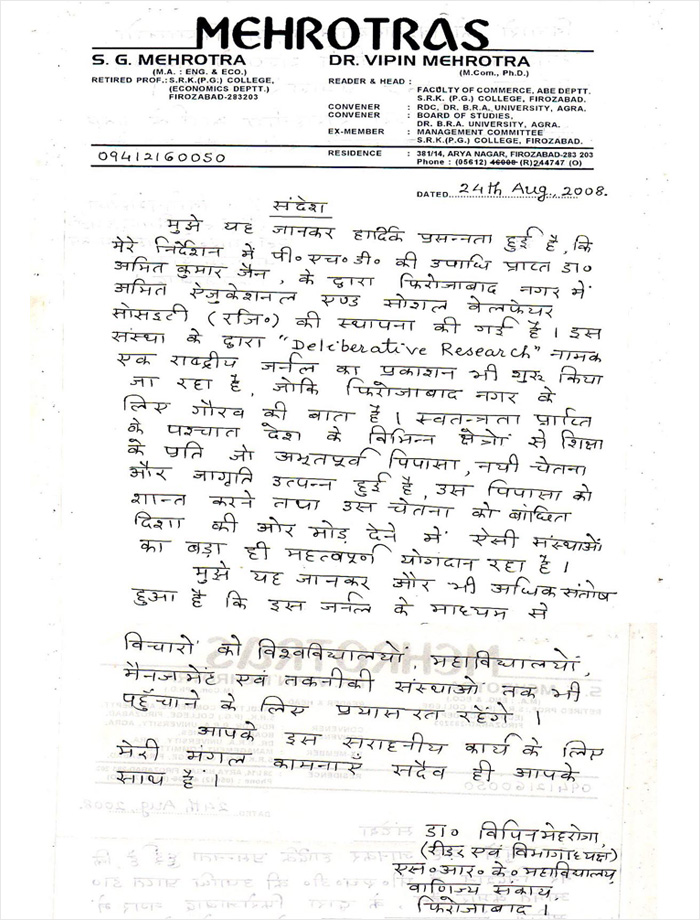 MEHROTRAS
S. G. MEHROTRA
(M.A. : ENG. & ECO.)
RETIRED PROF.: S.R.K.(P.G.) COLLEGE,
(ECONOMICS DEPTT.)
FIROZABAD-283203
09412160050
DR. VIPIN MEHROTRA
(M.Com., Ph.D.)
READER & HEAD : FACULTY OF COMMERCE, ABE DEPTT.
S.R.K. (P.G.) COLLEGE, FIROZABAD.
CONVENER : RDC, DR. B.R.A. UNIVERSITY, AGRA.
CONVENER : BOARD OF STUDIES,
DR. B.R.A. UNIVERSITY, AGRA.
EX-MEMBER : MANAGEMENT COMMITTEE
S.R.K. (P.G.) COLLEGE, FIROZABAD.
RESIDENCE : 381/14, ARYA NAGAR, FIROZABAD-283 203
Phone : (05612) (R) 244747 (O)
DATED 24th Aug., 2008.
संदेश
मुझे यह जानकर हार्दिक प्रसन्नता हुई है, कि
मेरे निर्देशन में पी० एच० डी० की उपाधि प्राप्त डा०
अमित कुमार जैन, के द्वारा फिरोजाबाद नगर में
अमित ऐजुकेशनल एण्ड सोशल वेलफेयर
सोसइटी (रजि०) की स्थापना की गई है। इस
संस्था के द्वारा "Deliberative Research" नामक
एक राष्ट्रीय जर्नल का प्रकाशन भी शुरू किया
जा रहा है, जोकि फिरोजाबाद नगर के
लिए गौरव की बात है। स्वतन्त्रता प्राप्ति
के पश्चात देश के विभिन्न क्षेत्रों से शिक्षा
के प्रति जो अभूतपूर्व पिपासा, नयी चेतना
और जागृति उत्पन्न हुई है, उस पिपासा को
शान्त करने तथा उस चेतना को बांछित
दिशा की ओर मोड़ देने में ऐसी संस्थाओं
का बड़ा ही महत्वपूर्ण योगदान रहा है।
मुझे यह जानकर और भी अधिक संतोष
हुआ है कि इस जर्नल के माध्यम से
विचारों को विश्वविद्यालयों, महाविद्यालयों,
मैनजमेंट एवं तकनीकी संस्थाओं तक भी
पहुँचाने के लिए प्रयासरत रहेंगे।
आपके इस सराहनीय कार्य के लिए
मेरी मंगल कामनाएँ सदैव ही आपके
साथ हैं।
डा० विपिन मेहरोत्रा,
(रीडर एवं विभागाध्यक्ष)
एस० आर० के० महाविद्यालय,
वाणिज्य संकाय,
फिरोजाबाद।